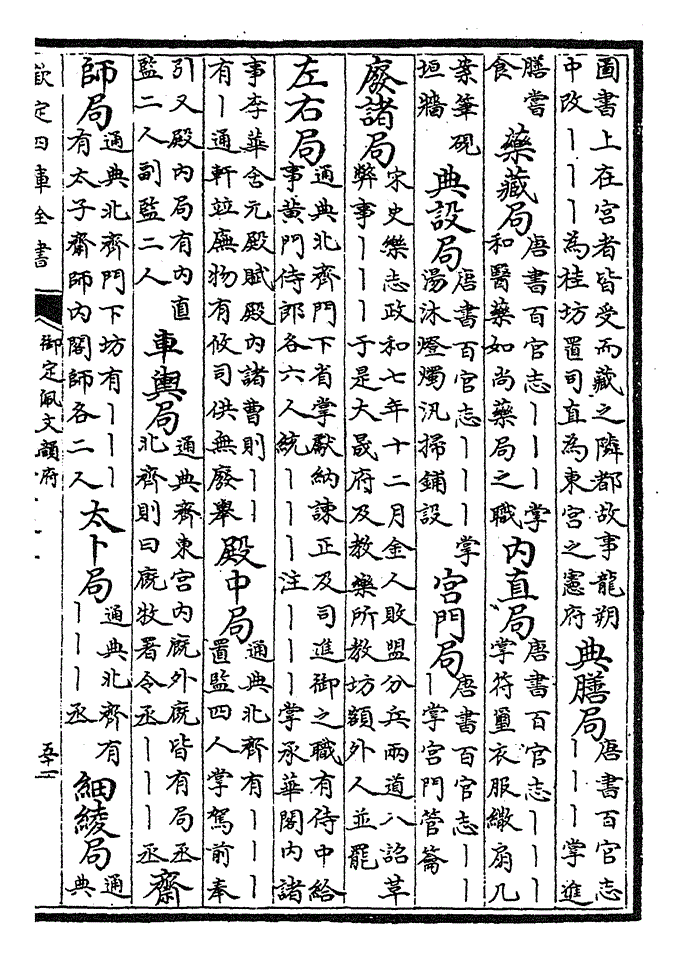 圖書上在宮者皆受而藏之隣都故事龍朔
中改丨丨丨為桂坊置司直為東宮之憲府
典膳局
唐書百官志
丨丨丨掌進
膳嘗
食
藥藏局
唐書百官志丨丨丨掌
和醫藥如尚藥局之職
內直局
唐書百官志丨丨丨
掌符璽衣服繖扇几
案筆硯
垣牆
典設局
唐書百官志丨丨丨掌
湯沐燈燭汎掃鋪設
宮門局
唐書百官志丨丨
丨掌宮門管籥
廢諸局
宋史樂志政和七年十二月金人敗盟分兵兩道入詔革
弊事丨丨丨于是大晟府及教樂所教坊額外人並罷
左右局
通典北齊門下省掌獻納諫正及司進御之職有侍中給
事黃門侍郎各六人統丨丨丨注丨丨丨掌承華閣內諸
事李華含元殿賦殿內諸曹則丨丨
有丨通軒竝廡物有攸司供無廢舉
殿中局
通典北齊有丨丨丨
置監四人掌駕前奉
引又殿內局有內直
監二人副監二人
車輿局
通典齊東宮內廐外廐皆有局丞
北齊則曰廐牧署令丞丨丨丨丞
齋
師局
通典北齊門下坊有丨丨丨
有太子齋師內閣師各二人
太卜局
通典北齊有
丨丨丨丞
細綾局
通
典
欽定四庫全書
御定佩文韻府